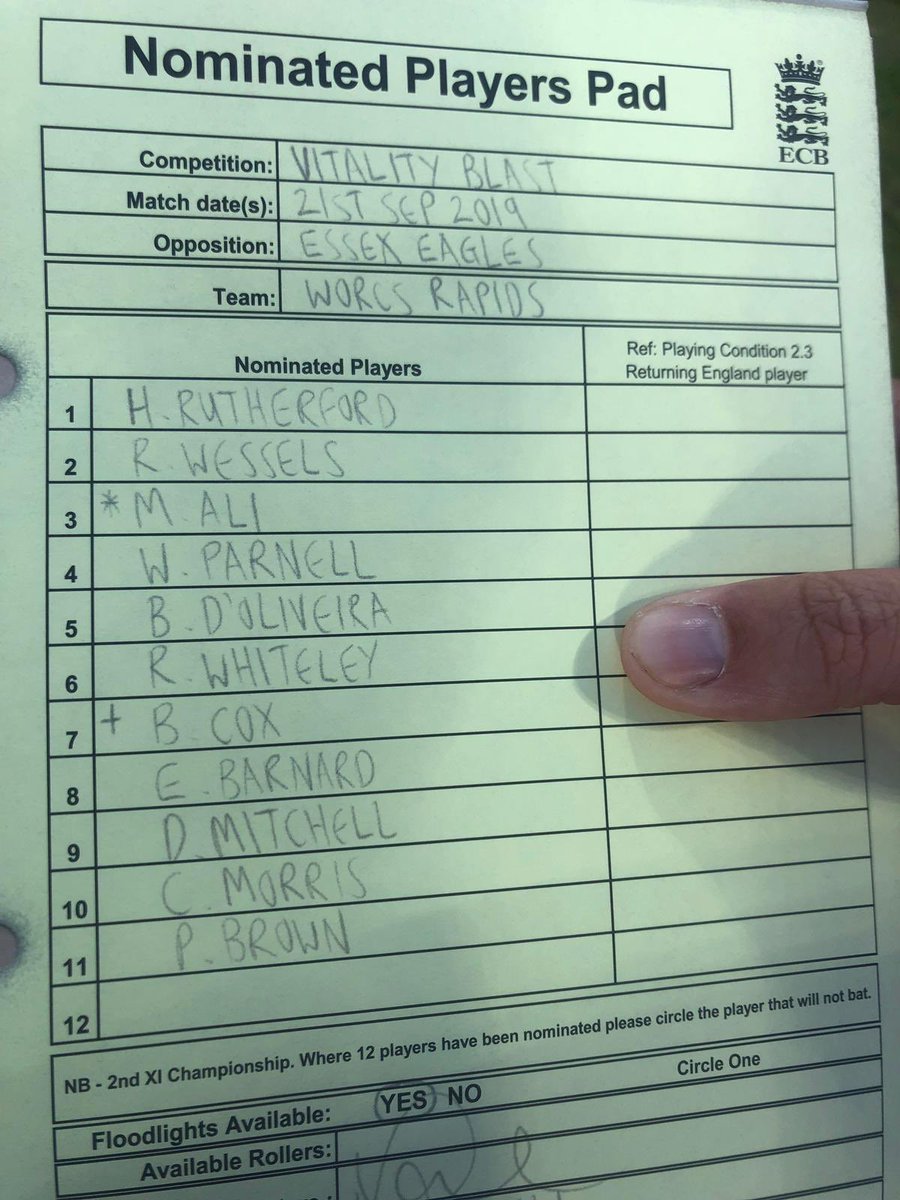 Nominated Players Pad
ECB
Competition: VITALITY BLAST
Match date(s): 21ST SEP 2019
Opposition: ESSEX EAGLES
Team: WORCS RAPIDS
Nominated Players
Ref: Playing Condition 2.3
Returning England player
1 H. RUTHERFORD
2 R. WESSELS
3 * M. ALI
4 W. PARNELL
5 B. D'OLIVEIRA
6 R. WHITELEY
7 + B. COX
8 E. BARNARD
9 D. MITCHELL
10 C. MORRIS
11 P. BROWN
12
NB - 2nd XI Championship. Where 12 players have been nominated please circle the player that will not bat.
Circle One
Floodlights Available: YES NO
Available Rollers: